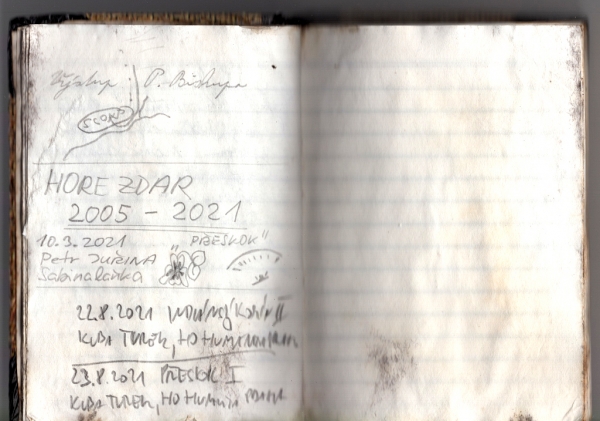 Výstup P. Bishupa
HORE ZDAR
2005 - 2021
10.3.2021 "PŘESKOK"
Petr JUŘINA
Sabina
22.8.2021 II
KUBA TUREK, HO HUMPOLEC
23.8.2021 PŘESKOK I
KUBA TUREK, HO